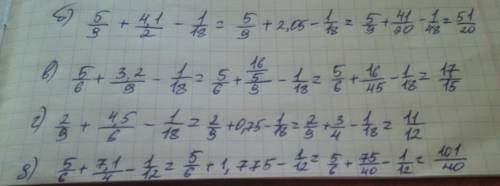 б) 5/9 + 4,1/2 - 1/18 = 5/9 + 2,05 - 1/18 = 5/9 + 41/20 - 1/18 = 51/20
в) 5/6 + 3,2/9 - 1/18 = 5/6 + 16/5/9 - 1/18 = 5/6 + 16/45 - 1/18 = 17/15
г) 2/9 + 4,5/6 - 1/18 = 2/9 + 0,75 - 1/18 = 2/9 + 3/4 - 1/18 = 11/12
д) 5/6 + 7,1/4 - 1/12 = 5/6 + 1,775 - 1/12 = 5/6 + 75/40 - 1/12 = 101/40